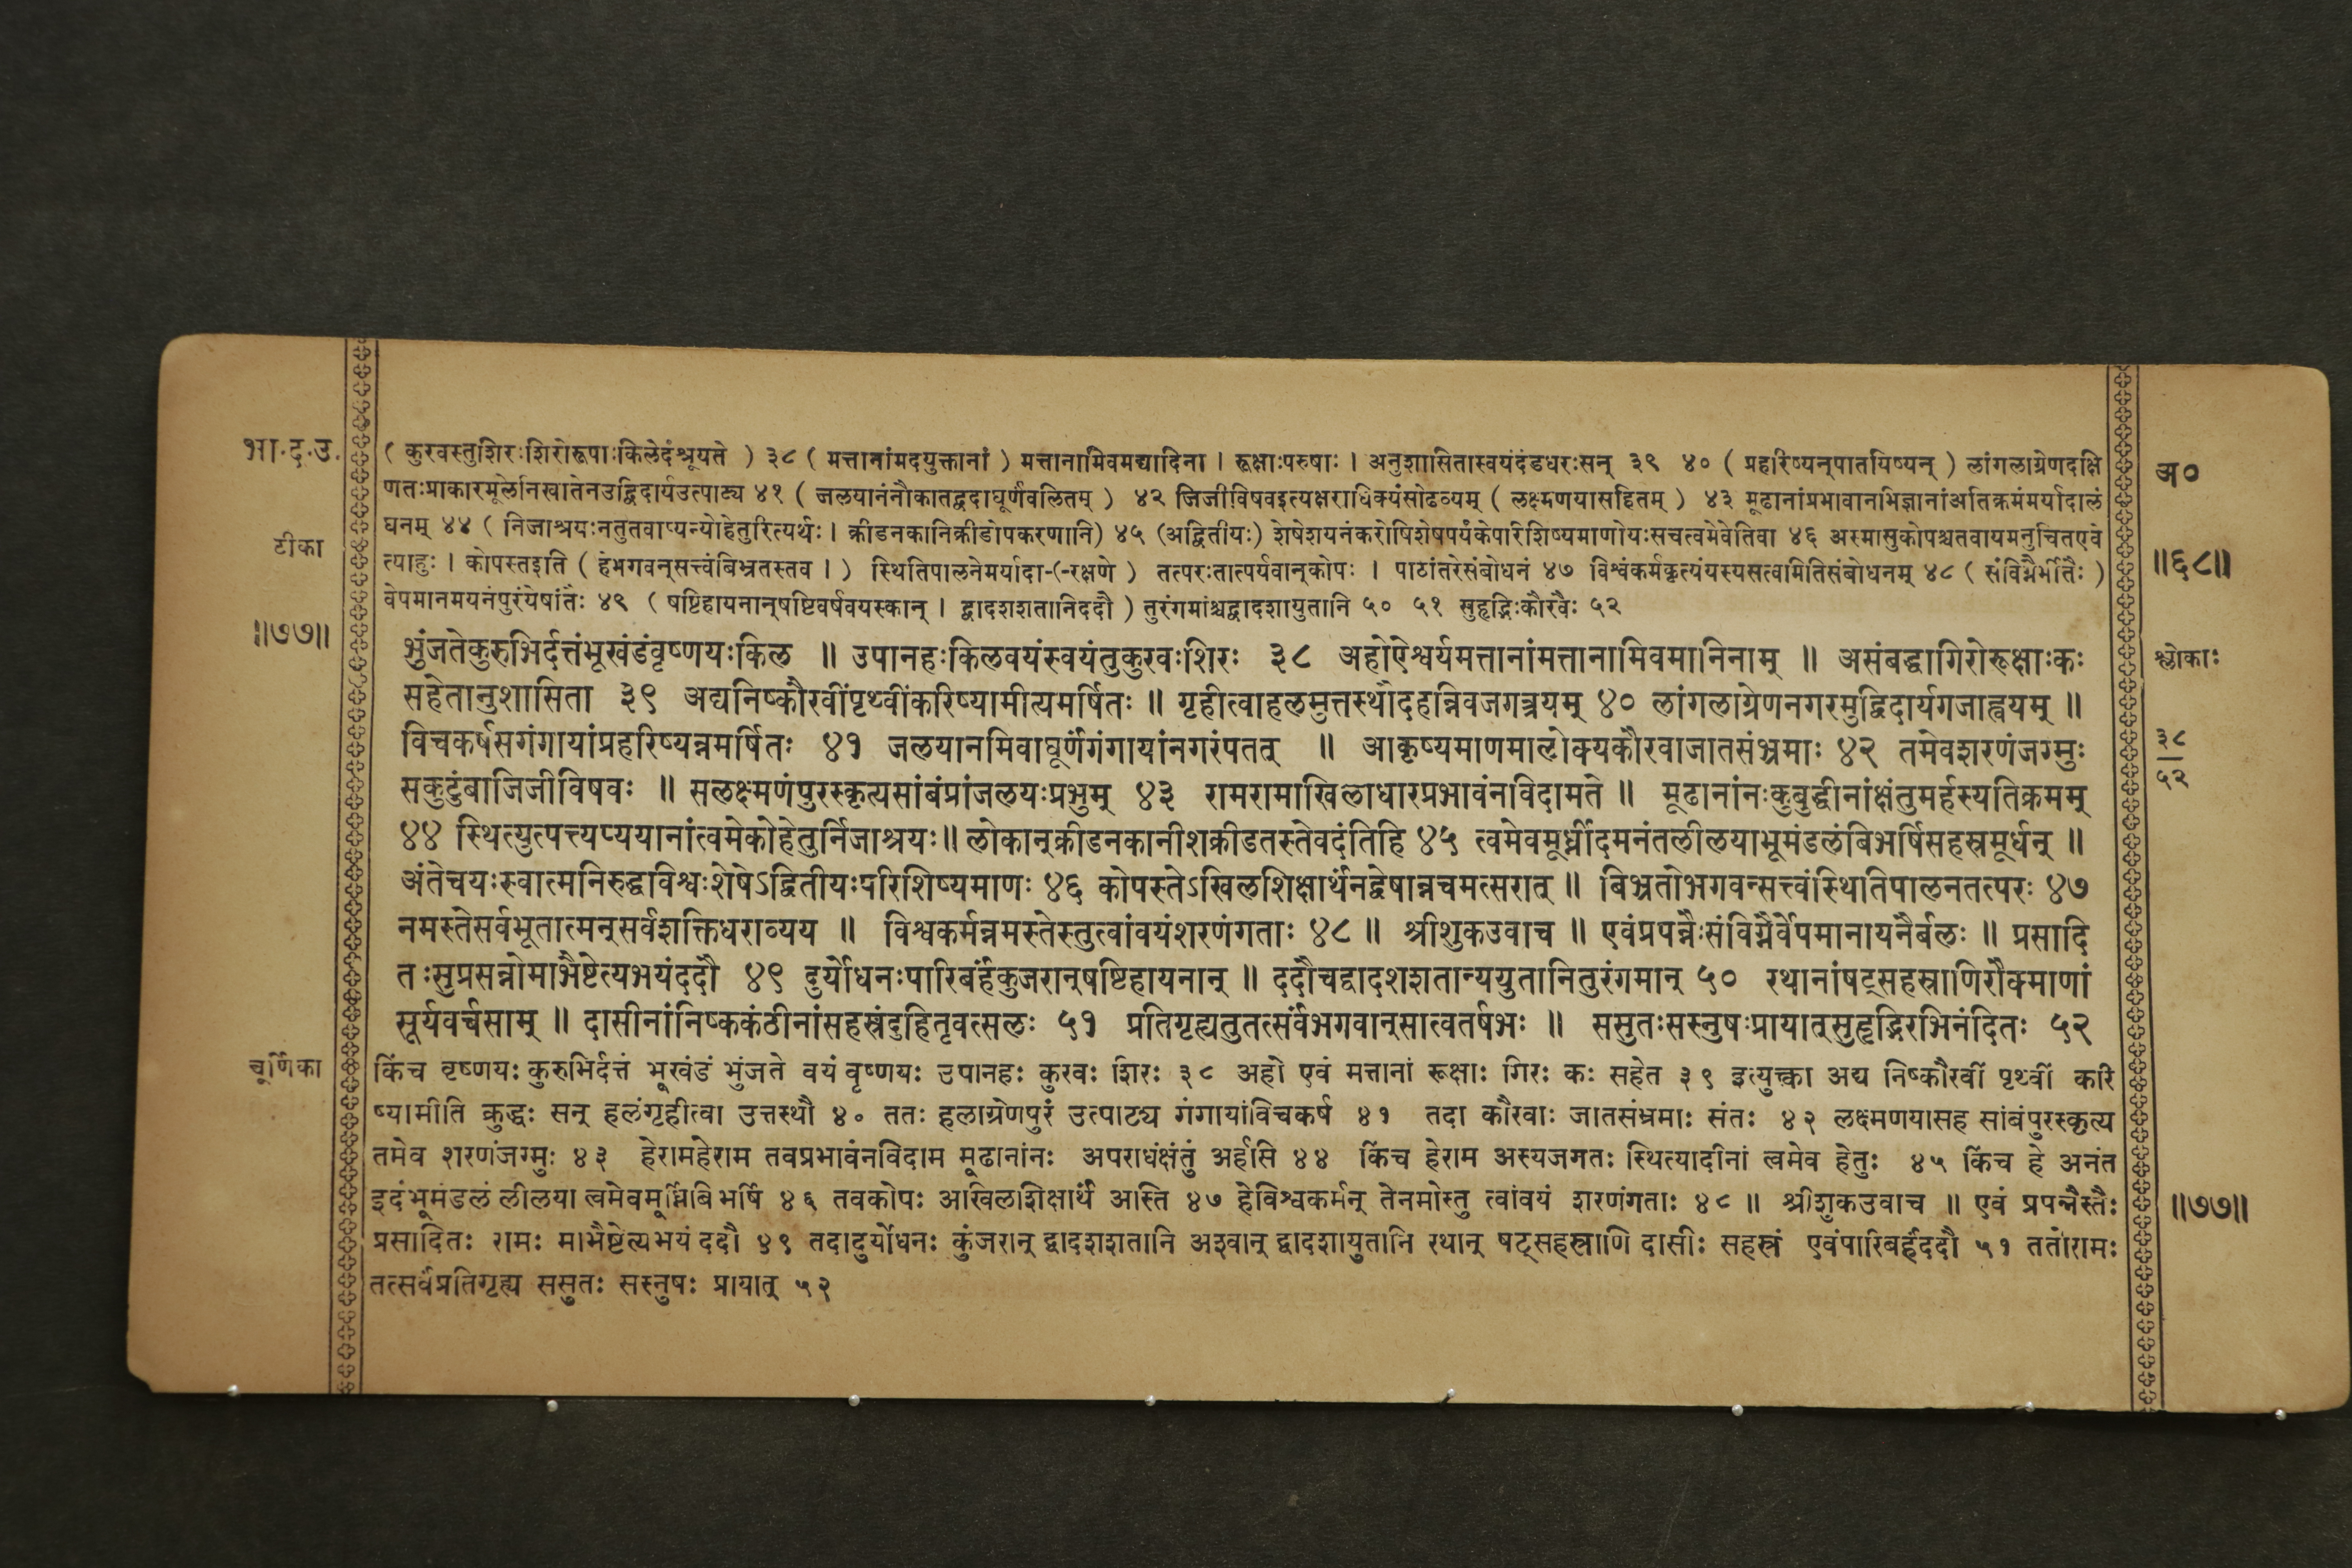 भा.द.उ.
टीका
॥७७॥
( कुरवस्तुशिरःशिरोरूपाःकिलेदंश्रूयते ) ३८ ( मत्तानांमदयुक्तानां ) मत्तानामिवमद्यादिना । रूक्षाःपरुषाः । अनुशासितास्वयंदंडधरःसन् ३९ ४० ( प्रहरिष्यन्पातयिष्यन् ) लांगलाग्रेणदक्षि
णतःप्राकारमूलेनिखातेनउद्विदार्यउत्पाट्य ४१ ( जलयानंनौकातद्वदाघूर्णंवलितम् ) ४२ जिजीविषवइत्यक्षराधिक्यंसोढव्यम् ( लक्ष्मणयासहितम् ) ४३ मूढानांप्रभावानभिज्ञानांअतिक्रमंमर्यादालं
घनम् ४४ ( निजाश्रयःनतुतवाप्यन्योहेतुरित्यर्थः । क्रीडनकानिक्रीडोपकरणानि) ४५ (अद्वितीयः) शेषेशयनंकरोषिशेषपर्यंकेपरिशिष्यमाणोयःसचत्वमेवेतिवा ४६ अस्मासुकोपश्चतवायमनुचितएवं
त्याहुः । कोपस्तइति ( हेभगवन्सत्त्वंबिभ्रतस्तव । ) स्थितिपालनेमर्यादा-(-रक्षणे ) तत्परःतात्पर्यवान्कोपः । पाठांतरेसंबोधनं ४७ विश्वंकर्मकृत्यंयस्यसत्वमितिसंबोधनम् ४८ ( संविग्नैर्भीतैः )
वेपमानमयनंपुरंयेषांतैः ४९ ( षष्टिहायनान्षष्टिवर्षवयस्कान् । द्वादशशतानिददौ ) तुरंगमांश्चद्वादशायुतानि ५० ५१ सुहृद्भिःकौरवैः ५२
भुंजतेकुरुभिर्दत्तंभूखंडंवृष्णयःकिल ॥ उपानहःकिलवयंस्वयंतुकुरवःशिरः ३८ अहोऐश्वर्यमत्तानांमत्तानामिवमानिनाम् ॥ असंबद्धागिरोरूक्षाःकः
सहेतानुशासिता ३९ अद्यनिष्कौरवींपृथ्वींकरिष्यामीत्यमर्षितः ॥ गृहीत्वाहलमुत्तस्थौदहन्निवजगत्त्रयम् ४० लांगलाग्रेणनगरमुद्विदार्यगजाह्वयम् ॥
विचकर्षसगंगायांप्रहरिष्यन्नमर्षितः ४१ जलयानमिवाघूर्णंगंगायांनगरंपतत् ॥ आकृष्यमाणमालोक्यकौरवाजातसंभ्रमाः ४२ तमेवशरणंजग्मुः
सकुटुंबाजिजीविषवः ॥ सलक्ष्मणंपुरस्कृत्यसांबंप्रांजलयःप्रभुम् ४३ रामरामाखिलाधारप्रभावंनविदामते ॥ मूढानांनःकुबुद्धीनांक्षंतुमर्हस्यतिक्रमम्
४४ स्थित्युत्पत्त्यप्ययानांत्वमेकोहेतुर्निजाश्रयः॥ लोकान्क्रीडनकानीशक्रीडतस्तेवदंतिहि ४५ त्वमेवमूर्ध्नीदमनंतलीलयाभूमंडलंबिभर्षिसहस्रमूर्धन् ॥
अंतेचयःस्वात्मनिरुद्धविश्वःशेषेऽद्वितीयःपरिशिष्यमाणः ४६ कोपस्तेऽखिलशिक्षार्थंनद्वेषान्नचमत्सरात् ॥ बिभ्रतोभगवन्सत्त्वंस्थितिपालनतत्परः ४७
नमस्तेसर्वभूतात्मन्सर्वशक्तिधराव्यय ॥ विश्वकर्मन्नमस्तेस्तुत्वांवयंशरणंगताः ४८ ॥ श्रीशुकउवाच ॥ एवंप्रपन्नैःसंविग्नैर्वेपमानायनैर्बलः ॥ प्रसादि
तःसुप्रसन्नोमाभैष्टेत्यभयंददौ ४९ दुर्योधनःपारिबर्हंकुंजरान्षष्टिहायनान् ॥ ददौचद्वादशशतान्ययुतानितुरंगमान् ५० रथानांषट्सहस्राणिरौक्माणां
सूर्यवर्चसाम् ॥ दासीनांनिष्ककंठीनांसहस्रंदुहितृवत्सलः ५१ प्रतिगृह्यतुतत्सर्वंभगवान्सात्वतर्षभः ॥ ससुतःसस्नुषःप्रायात्सुहृद्भिरभिनंदितः ५२
चूर्णिका
किंच वृष्णयः कुरुभिर्दत्तं भूखंडं भुंजते वयं वृष्णयः उपानहः कुरवः शिरः ३८ अहो एवं मत्तानां रूक्षाः गिरः कः सहेत ३९ इत्युक्त्वा अद्य निष्कौरवीं पृथ्वीं करि
ष्यामीति क्रुद्धः सन् हलंगृहीत्वा उत्तस्थौ ४० ततः हलाग्रेणपुरं उत्पाट्य गंगायांविचकर्ष ४१ तदा कौरवाः जातसंभ्रमाः संतः ४२ लक्ष्मणयासह सांबंपुरस्कृत्य
तमेव शरणंजग्मुः ४३ हेरामहेराम तवप्रभावंनविदाम मूढानांनः अपराधंक्षंतुं अर्हसि ४४ किंच हेराम अस्यजगतः स्थित्यादीनां त्वमेव हेतुः ४५ किंच हे अनंत
इदंभूमंडलं लीलया त्वमेवमूर्ध्निबिभर्षि ४६ तवकोपः अखिलशिक्षार्थं आस्ति ४७ हेविश्वकर्मन् तेनमोस्तु त्वांवयं शरणंगताः ४८ ॥ श्रीशुकउवाच ॥ एवं प्रपन्नैस्तैः
प्रसादितः रामः माभैष्टेत्यभयं ददौ ४९ तदादुर्योधनः कुंजरान् द्वादशशतानि अश्वान् द्वादशायुतानि रथान् षट्सहस्राणि दासीः सहस्रं एवंपारिबर्हंददौ ५१ ततोरामः
तत्सर्वंप्रतिगृह्य ससुतः सस्नुषः प्रायात् ५२
अ०
॥६८॥
श्लोकाः
३८
५२
॥७७॥